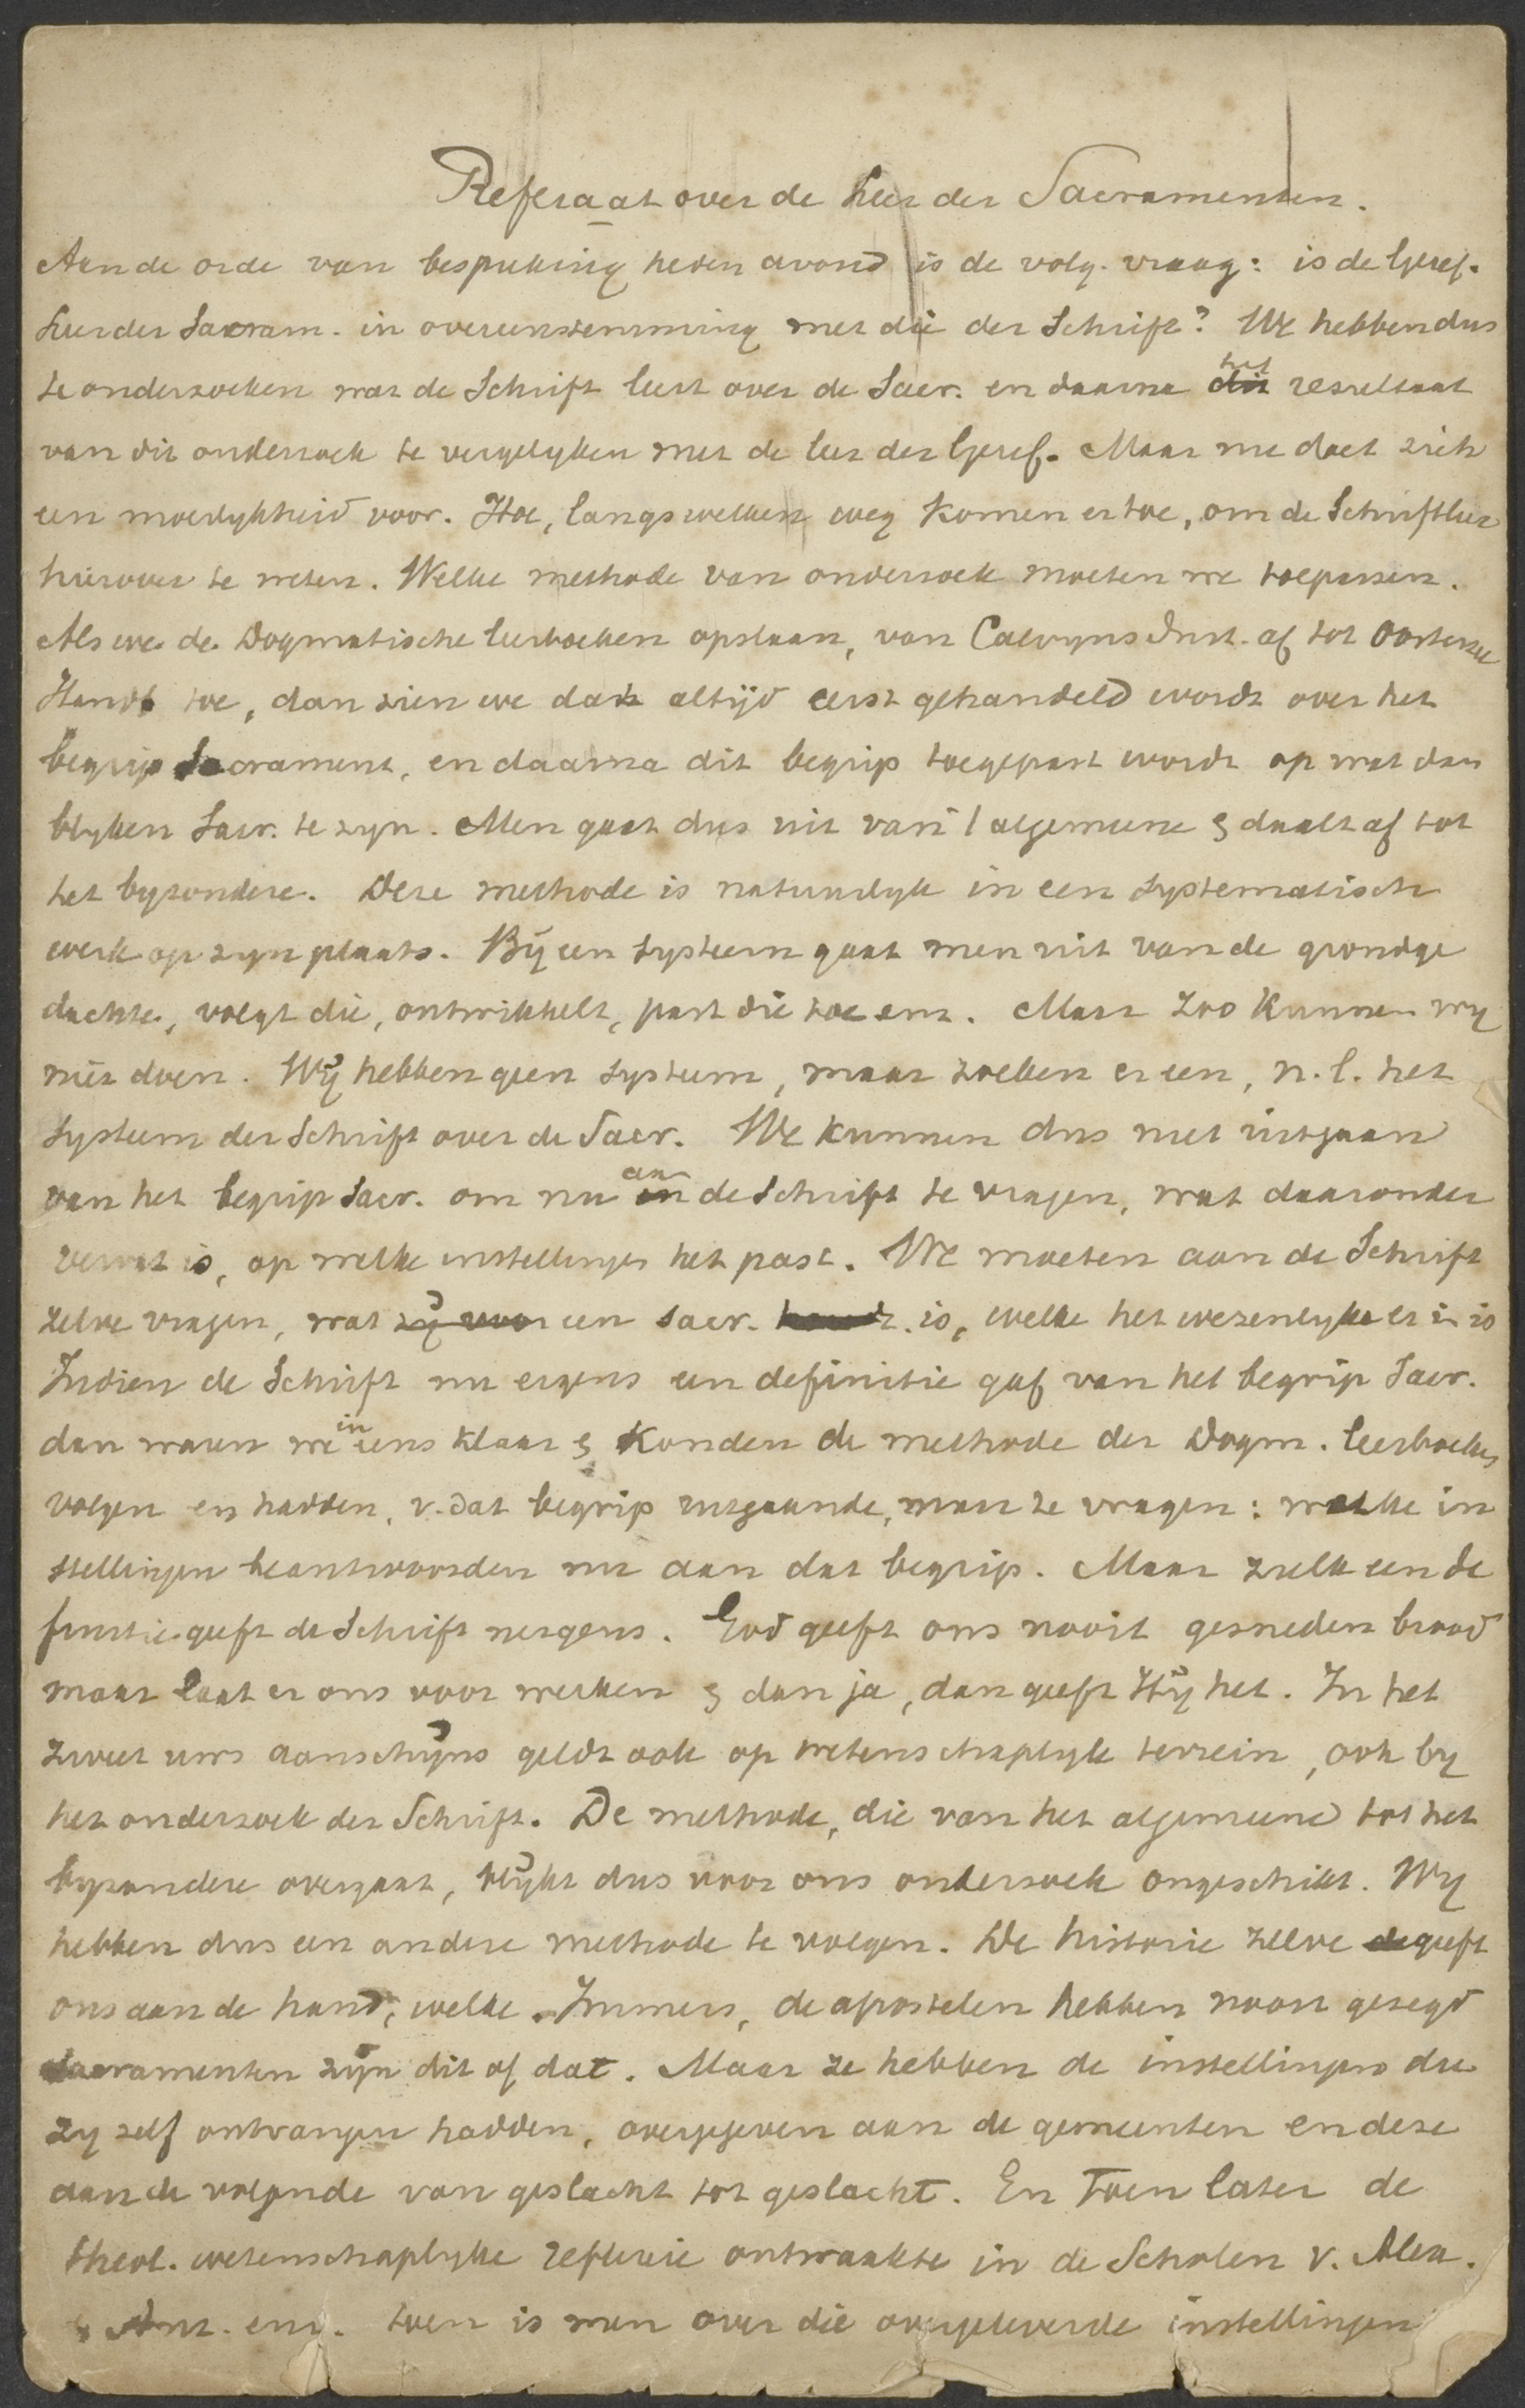 Referaat over de leer der Sacramenten.
Aan de orde van bespreking heden avond is de volg. vraag: is de Geref.
leer der Sacram. in overeenstemming met die der Schrift? We hebben dus
te onderzoeken wat de Schrift leert over de Sacr. en daarna dit het resultaat
van dit onderzoek te vergelyken met de leer der Geref. Maar nu doet zich
een moeilykheid voor. Hoe, langs welken weg komen er toe, om de Schriftleer
hierover te weten. Welke methode van onderzoek moeten we toepassen.
Als we de Dogmatische leerboeken opslaan, van Calvyns Inst. af tot Oosterzee
Handb toe, dan zien we dat altijd eerst gehandeld wordt over het
begrip Sacrament, en daarna dit begrip toegepast wordt op wat dan
blyken Sacr. te zyn. Men gaat dus uit van 't algemeene & daalt af tot
het byzondere. Deze methode is natuurlyk in een systematisch
werk op zyn plaats. Bij een systeem gaat men uit van de grondge
dachte, volgt die, ontwikkelt, past die toe enz. Maar zoo kunnen wy
niet doen. Wij hebben geen systeem, maar zoeken er een, n.l. het
systeem der Schrift over de Sacr. We kunnen dus niet uitgaan
van het begrip Sacr. om nu in aan de Schrift te vragen, wat daaronder
vervat is, op welke instellingen het past. We moeten aan de Schrift
zelve vragen, wat zij voor een Sacr. houdt. is, welke het wezenlyke er in is
Indien de Schrift nu ergens een definitie gaf van het begrip Sacr.
dan waren we in eens klaar & konden de methode der Dogm. leerboeken
volgen en hadden, v. dat begrip uitgaande, maar te vragen: welke in
stellingen beantwoorden nu aan dat begrip. Maar zulk een de
finitie geeft de Schrift nergens. God geeft ons nooit gesneden brood
maar laat er ons voor werken & dan ja, dan geeft Hij het. In het
zweet uws aanschijns geldt ook op wetenschaplyk terrein, ook by
het onderzoek der Schrift. De methode, die van het algemeene tot het
byzondere overgaat, blijkt dus voor ons onderzoek ongeschikt. Wy
hebben dus een andere methode te volgen. De historie zelve de geeft
ons aan de hand, welke. Immers, de apostelen hebben nooit gezegd
Sacramenten zijn dit of dat. Maar ze hebben de instellingen die
zy zelf ontvangen hadden, overgegeven aan de gemeenten en deze
aan de volgende van geslacht tot geslacht. En toen later de
theol. wetenschaplyke reflexie ontwaakte in de Scholen v. Alex.
& Ant. enz. toen is men over die overgeleverde instellingen